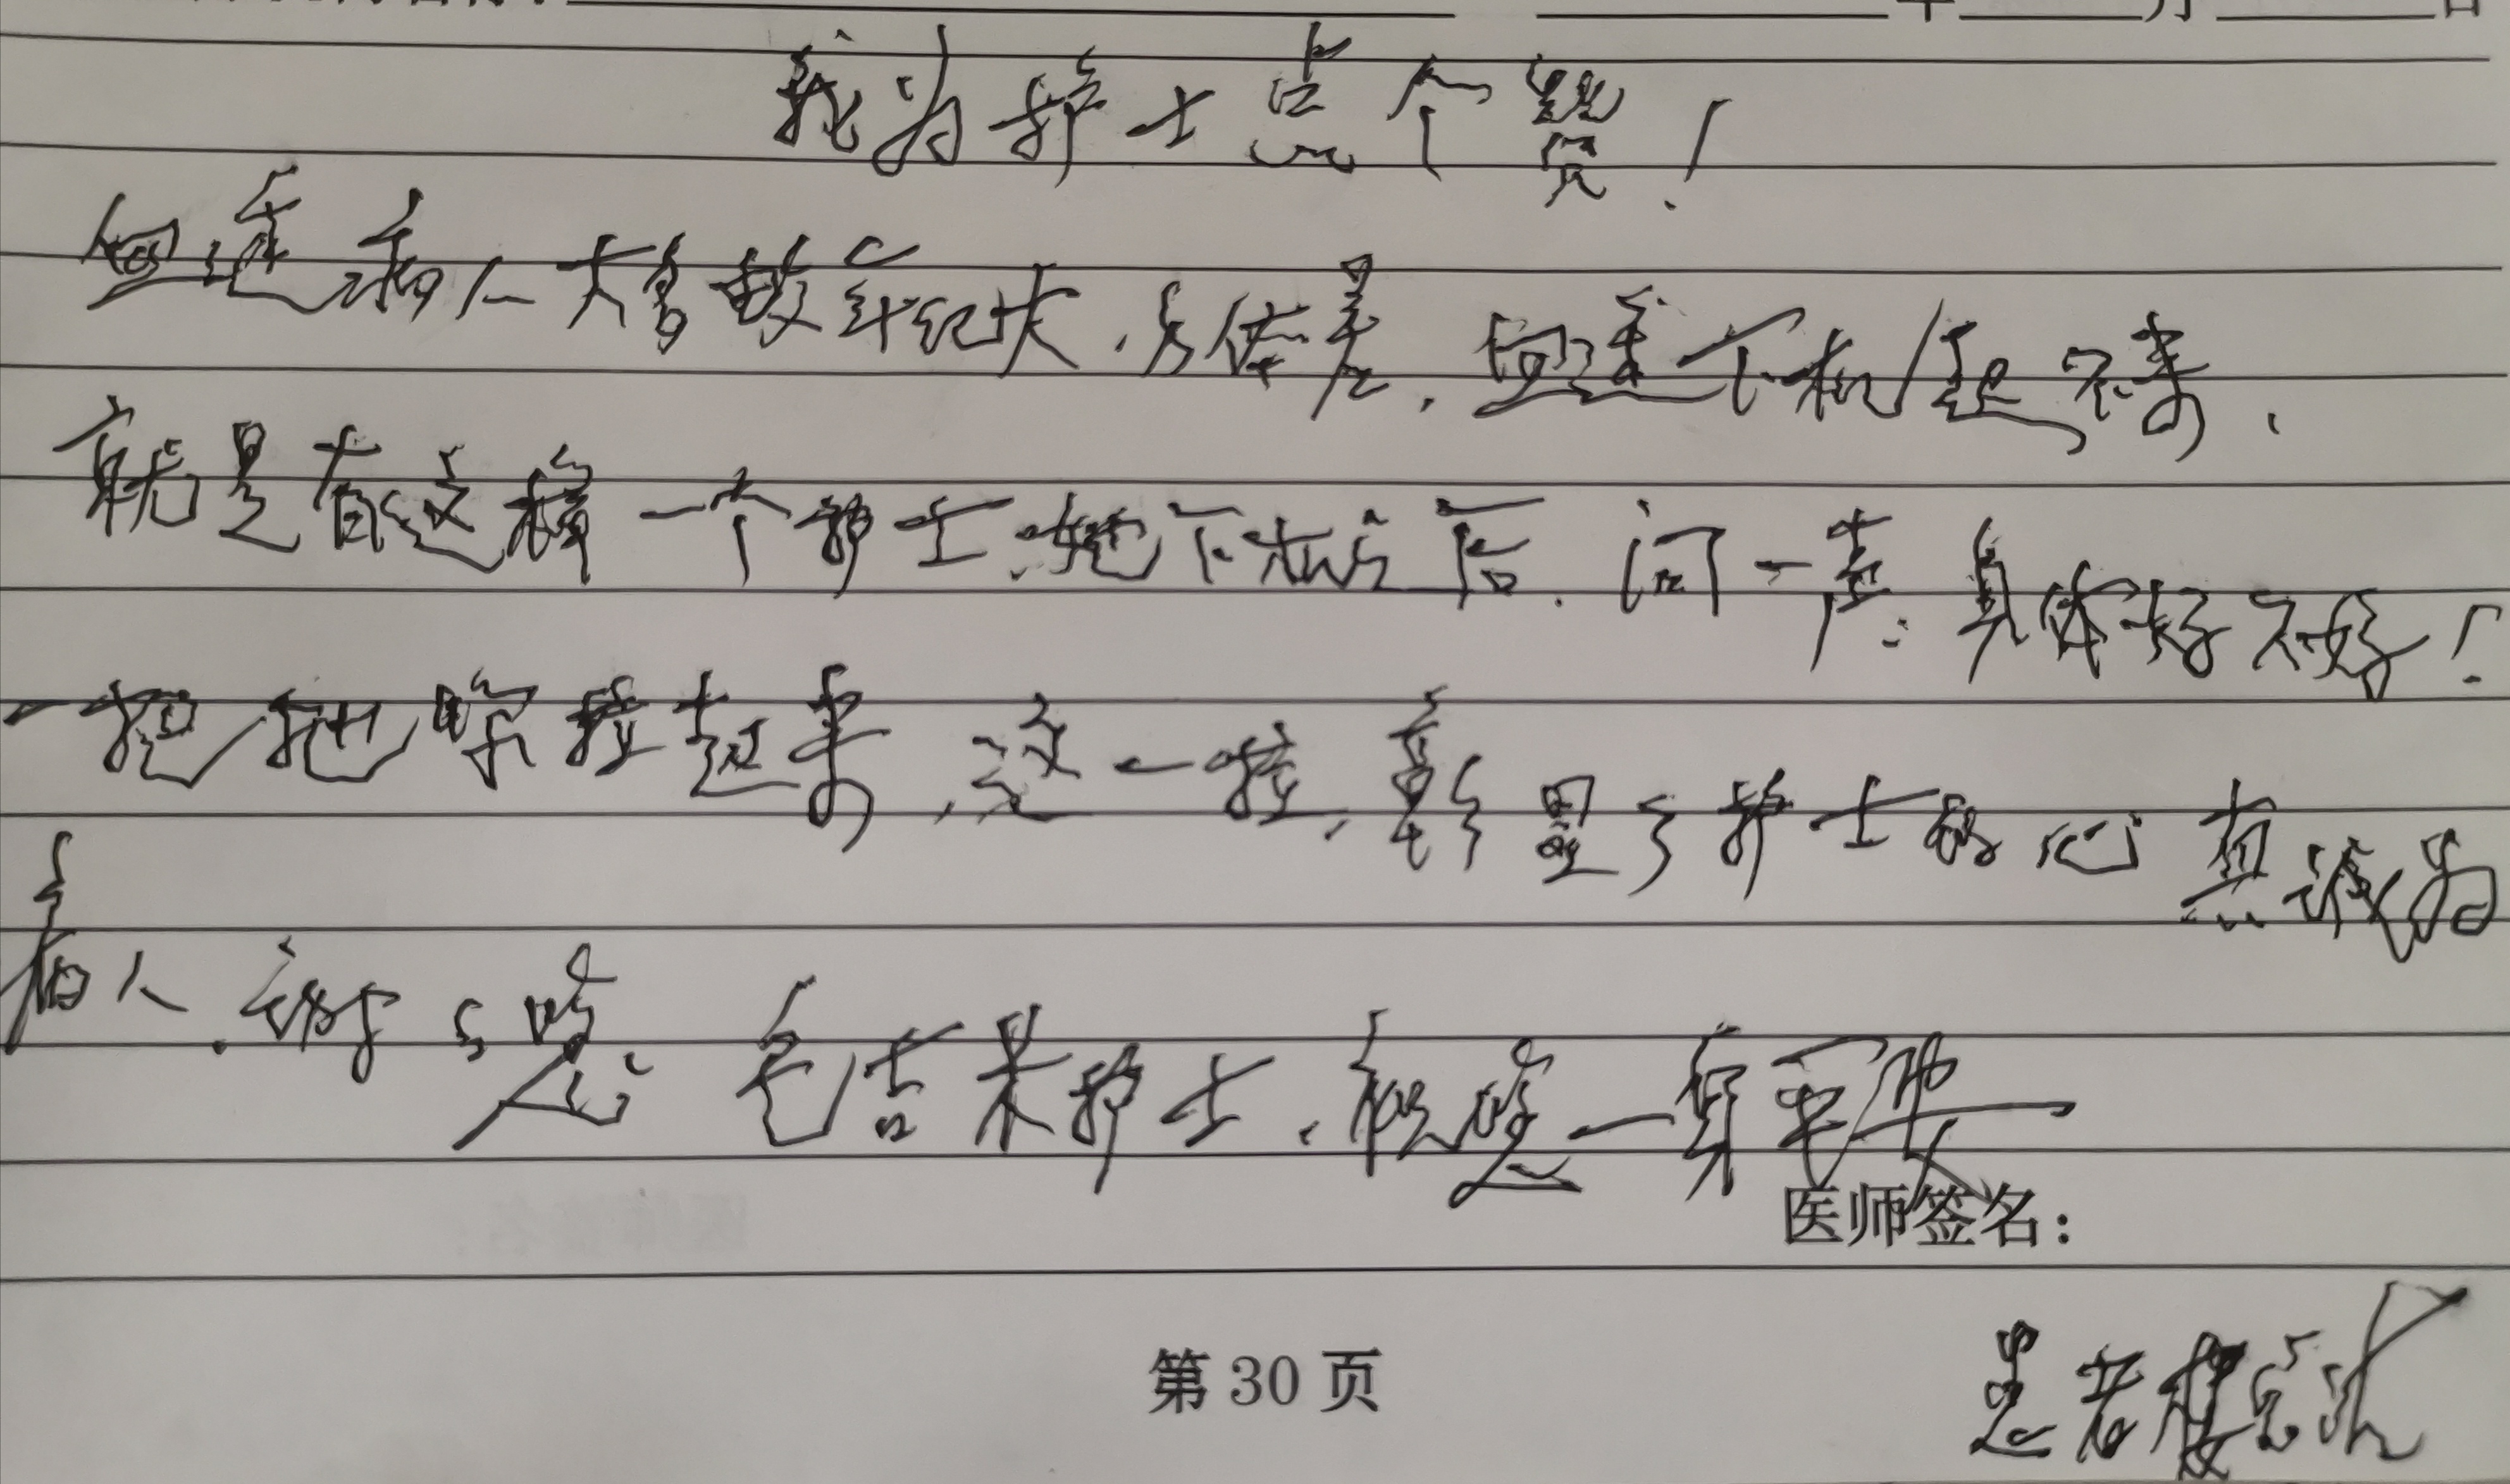 年 月 日
我为护士点个赞！
血透病人大多数年纪大，身体差，血透下机后起不来，
就是有这样一个护士，她下机之后，问一声：身体好不好！
一把把你拉起来，这一拉，彰显了护士的心，真诚为
病人，谢谢您 毛吉米护士，祝您一身平安
医师签名：
第 30 页
患者